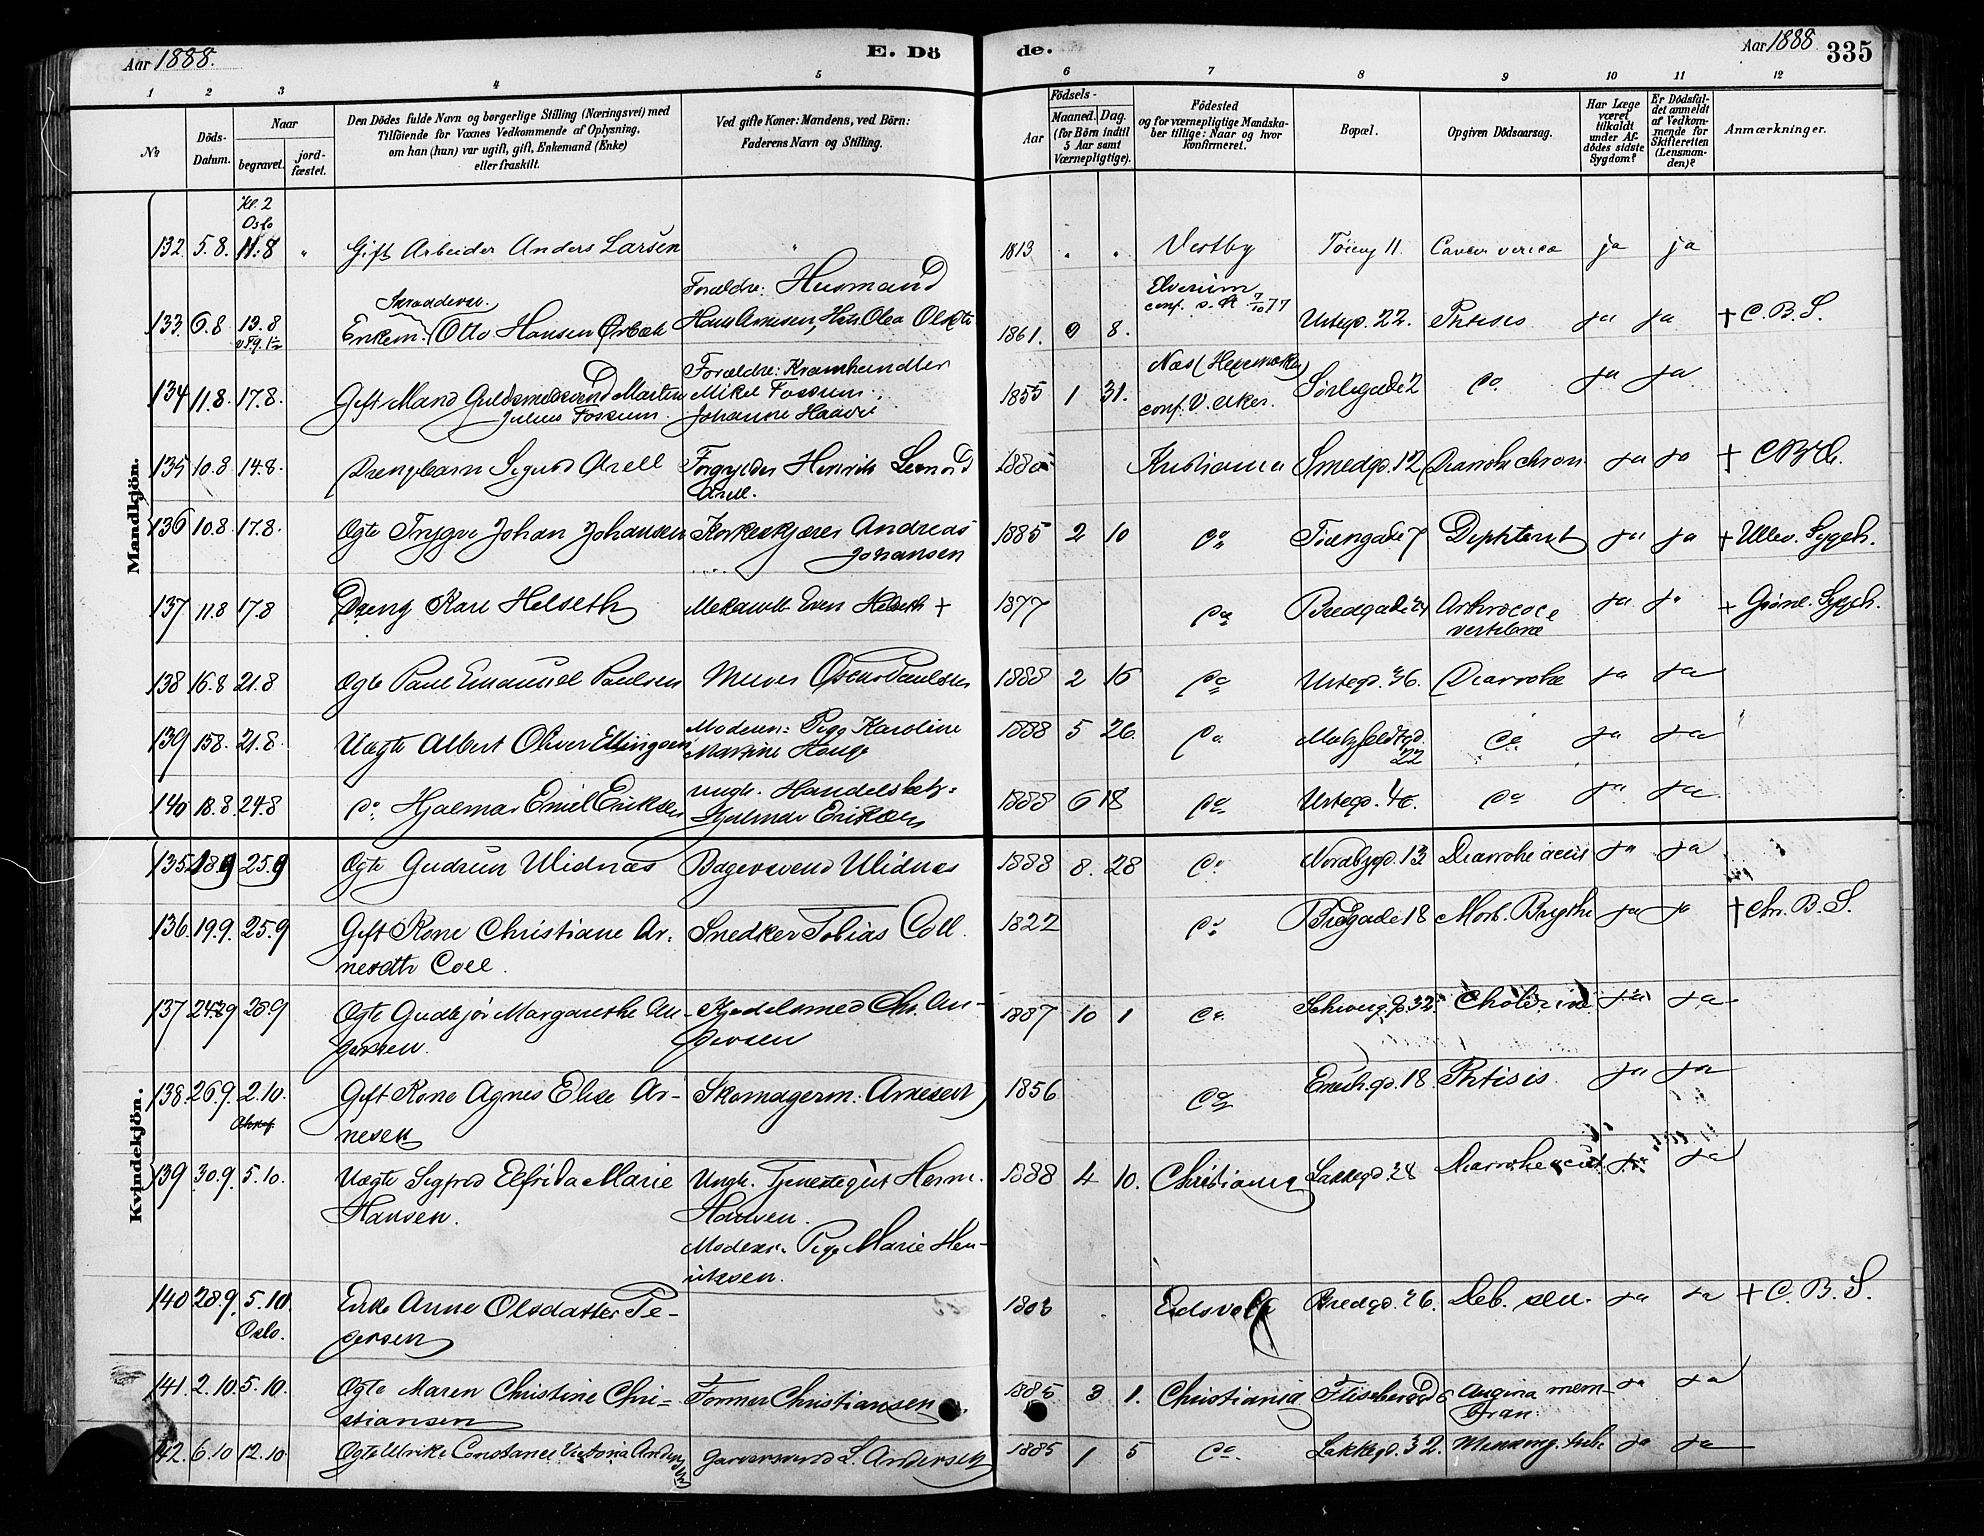 Aar 1888.
E. Dö
de.
Aar 1888
335
1 2 3 4 5 6 7 8 9 10 11 12
№
Döds-
Datum.
Naar
begravet.
jord-
fæstet.
Den Dödes fulde Navn og borgerlige Stilling (Næringsvei) med
Tilföiende for Voxnes Vedkommende af Oplysning,
om han (hun) var ugift, gift, Enkemand (Enke)
eller fraskilt.
Ved gifte Koner: Mandens, ved Börn:
Faderens Navn og Stilling.
Födsels-
Aar
Maaned. Dag.
(for Börn indtil
5 Aar samt
Værnepligtige).
Födested
og for værnepligtige Mandska-
ber tillige: Naar og hvor
konfirmeret.
Bopæl.
Opgiven Dödsaarsag.
Har Læge
været
tilkaldt
under Af-
dødes sidste
Sygdom?
Er Dödsfal-
det anmeldt
af Vedkom-
mende for
Skifteretten
(Lensman-
den)?
Anmærkninger.
Mandkjön.
Kl. 2
Oslo
132. 5.8. 11.8 " Gift Arbeider Anders Larsen " 1813 " " Vestby Töieng 11. ja ja
Skrædders.
Forældre: Husmand
Elverum
133. 6.8 13.8 Enkem. Otto Hansen Hans Arnesen, Olea 1861. 9 8. Urtegd. 22. Phtisis ja ja † C. B. S.
Forældre: Kramhandler
134 11.8. 17.8. Gift Mand Guldsmedsvend Martin Mikel Fossum, 1855 1 31. Sörlegade 2 do ja ja
Julius Fossum. Johanne conf. V. Aker.
135 10.8 14.8. Drengebarn Sigurd Arell Forgylder Henrik Leonard 1880 Kristiania Smedgd. 12 Diarrohe chron ja ja †
Arell.
136 10.8. 17.8. Ægte Trygve Johan Johansen Korkeskjærer Andreas 1885 2 10 do Töiengade 7 Diphterit ja ja † Ullev. Sygeh.
Johansen
137 11.8 17.8 Dreng Karl Helseth Even Helseth † 1877 do Bredgade ja ja † Grönl. Sygeh.
138 16.8 21.8 Ægte Paul Emanuel Paulsen Murer Oscar Paulsen 1888 2 16 do Urtegd. 36. Diarrohe ja ja
139 15.8. 21.8. Uægte Albert Oliver Ellingsen Moderen: Pige Karoline 1888 5 26 do Motzfeldtgd. do ja ja
Martine Haug 22
140 18.8 24.8 do Hjalmar Emil Eriksen ungk. Handelsbetj: 1888 6 18 do Urtegd. do ja ja
Hjalmar Eriksen
Kvindekjön.
135. 18.9 25.9 Ægte Gudrun Ulidnas Bagersvend Ulidnas 1888 8. 28 do Nordbygd. 13 Diarrohe acut ja ja
136. 19.9. 25.9 Gift Kone Christiane Ar- Snedker Tobias Coll. 1822 do Bredgade 18 Morb. Brigthi ja ja † Chr. B. S.
neseth Coll.
137 24.9 28.9 Ægte Gudbjör Margarethe An- Chr. An- 1887 10 1 do Schweig. gd. 32. Cholerine ja ja
dersen. dersen
138. 26.9. 2.10. Gift Kone Agnes Elise Ar- Skomagerm. Arnesen 1856 do Enerh.gd. 18. Phtisis ja ja
nesen
139 30.9. 5.10. Uægte Sigfrid Elfrida Marie Ungk. Tjenestegut Herm. 1888 4 10. Christiania Lakkegd. 28 Diarrohe acut. ja ja
Hansen. Hansen.
Moderen: Pige Marie Hen-
riksen.
140 28.9. 5.10 Enke Anne Olsdatter Pe- Eidsvold Bredgd. 26. Deb. sen. ja ja † C. B. S.
Oslo. dersen
141. 2.10. 5.10. Ægte Maren Christine Chri- Former Christiansen 1885 3 1. Christiania Angina mem- ja ja
stiansen bran.
142. 6.10 12.10 Ægte Ulrike Constance Victoria Andersen Garversvend L. Andersen 1885 1 5 do Lakkegd. 32. Mening. tub. ja ja